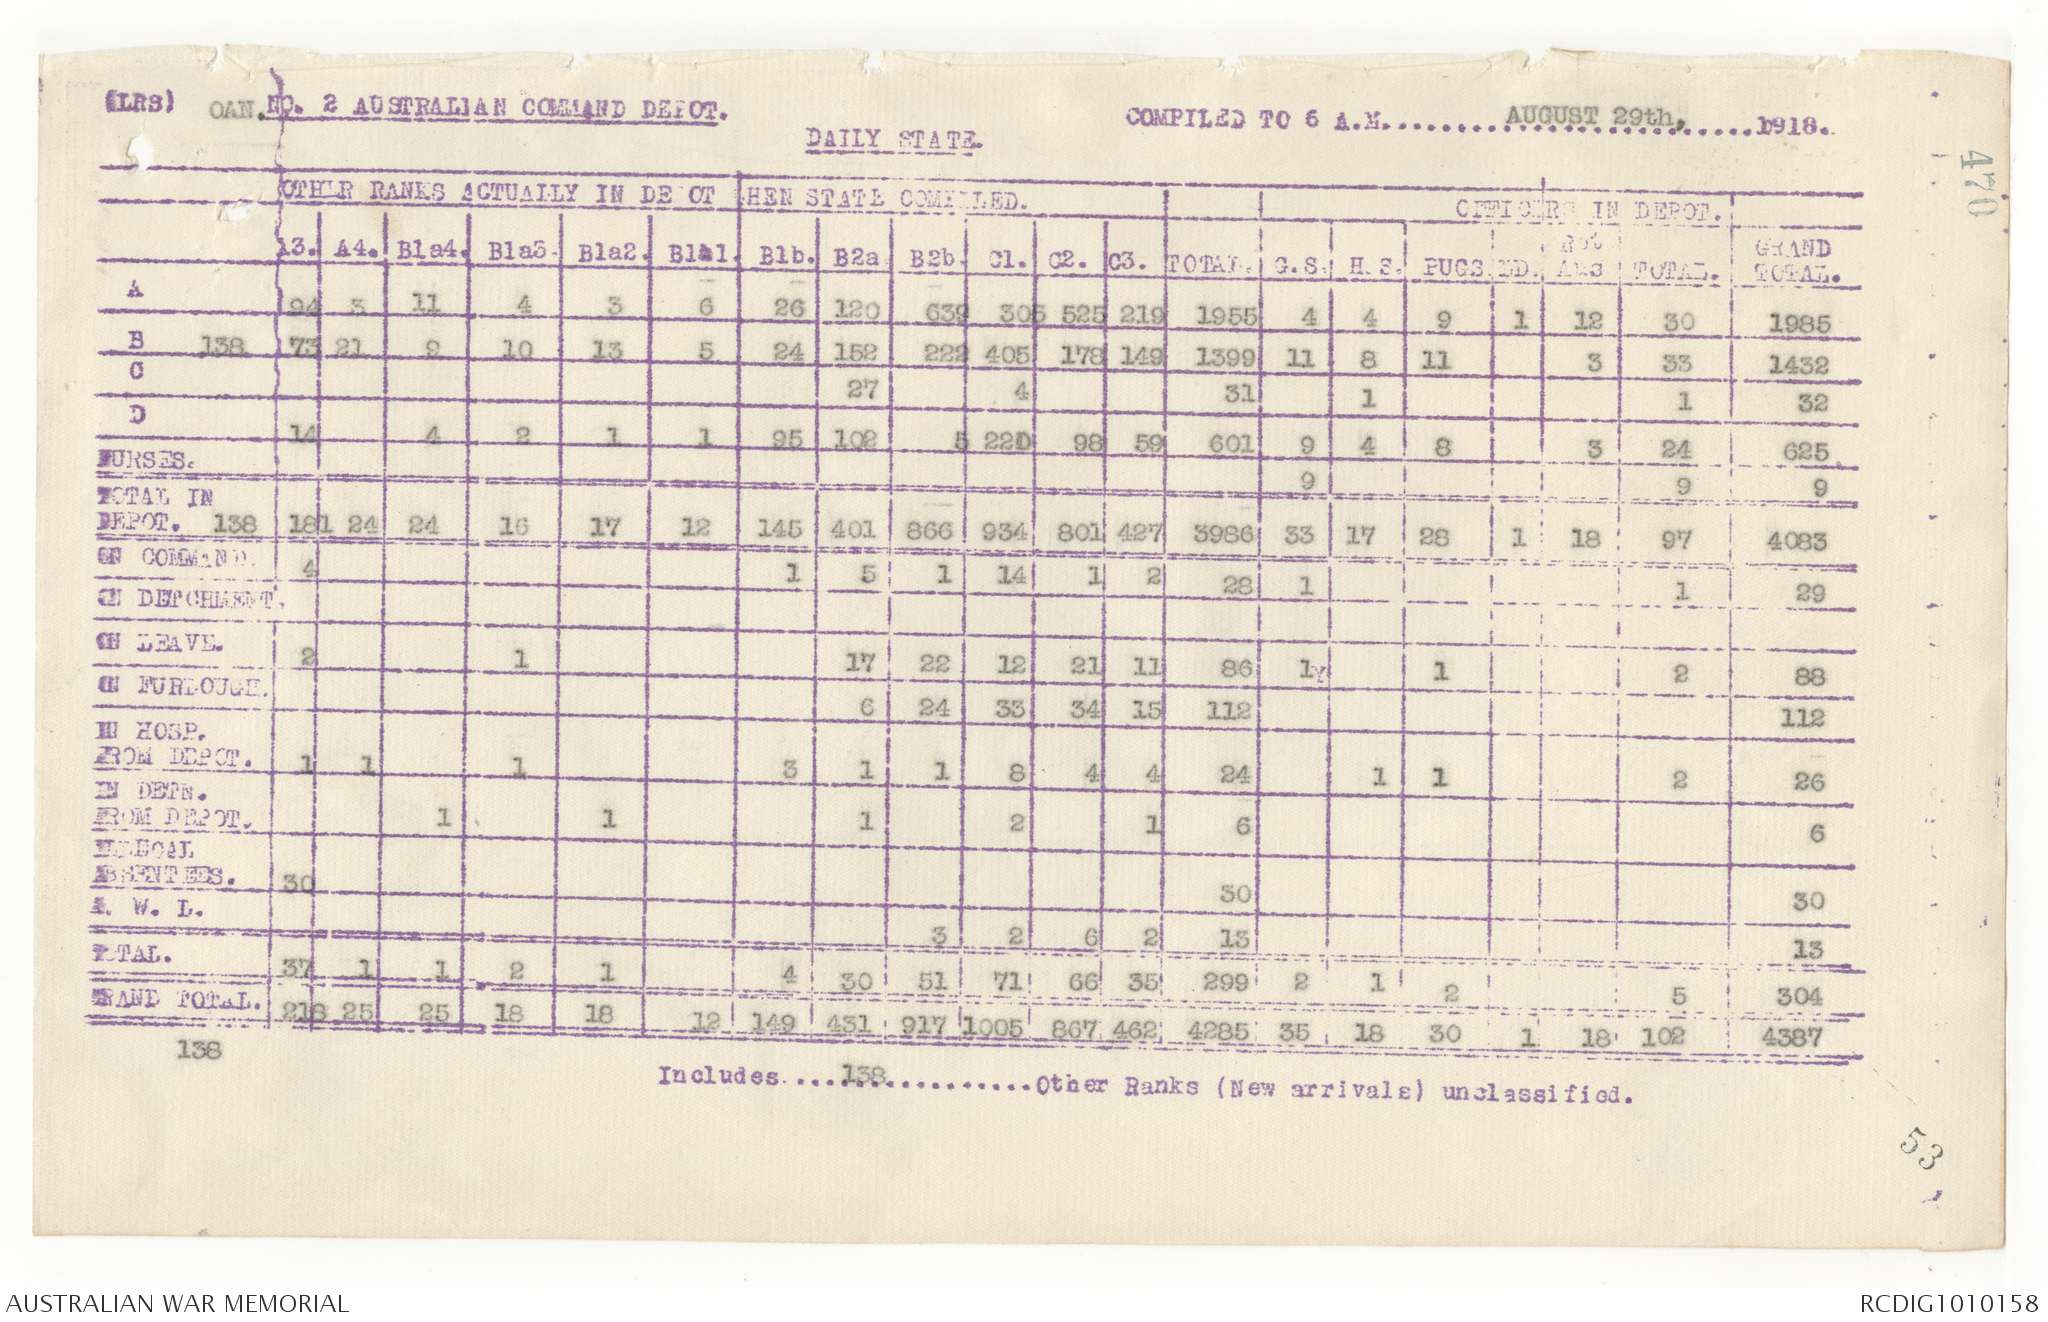 (LRS) OAN. NO. 2 AUSTRALIAN COMMAND DEPOT. COMPILED TO 6 A.M. AUGUST 29th, 1918.
DAILY STATE.
OTHER RANKS ACTUALLY IN DEPOT HEN STATE COMPILED. OFFICERS IN DEPOT.
A3. A4. B1a4. B1a3. B1a2. B1a1. B1b. B2a B2b. C1. C2. C3. TOTAL. G.S. H.S. PUGS Aus TOTAL. GRAND TOTAL.
A 94 3 11 4 3 6 26 120 639 305 525 219 1955 4 4 9 1 12 30 1985
B 138 73 21 9 10 13 5 24 152 222 405 178 149 1399 11 8 11 3 33 1432
C 27 4 31 1 1 32
D 14 4 2 1 1 95 102 5 220 98 59 601 9 4 8 3 24 625
NURSES. 9 9 9
TOTAL IN
DEPOT. 138 181 24 24 16 17 12 145 401 866 934 801 427 3986 33 17 28 1 18 97 4083
ON COMMAND. 4 1 5 1 14 1 2 28 1 1 29
ON DETCHMENT.
ON LEAVE. 2 1 17 22 12 21 11 86 1Y 1 2 88
ON FURLOUGH. 6 24 33 34 15 112 112
IN HOSP.
FROM DEPOT. 1 1 1 3 1 1 8 4 4 24 1 1 2 26
IN DETN.
FROM DEPOT. 1 1 1 2 1 6 6
ILLEGAL
ABSENTEES. 30 30 30
A. W. L. 3 2 6 2 13 13
TOTAL. 37 1 1 2 1 4 30 51 71 66 35 299 2 1 2 5 304
GRAND TOTAL. 218 25 25 18 18 12 149 431 917 1005 867 462 4285 35 18 30 1 18 102 4387
138
Includes 138 Other Ranks (New arrivals) unclassified.
470
53
AUSTRALIAN WAR MEMORIAL RCDIG1010158